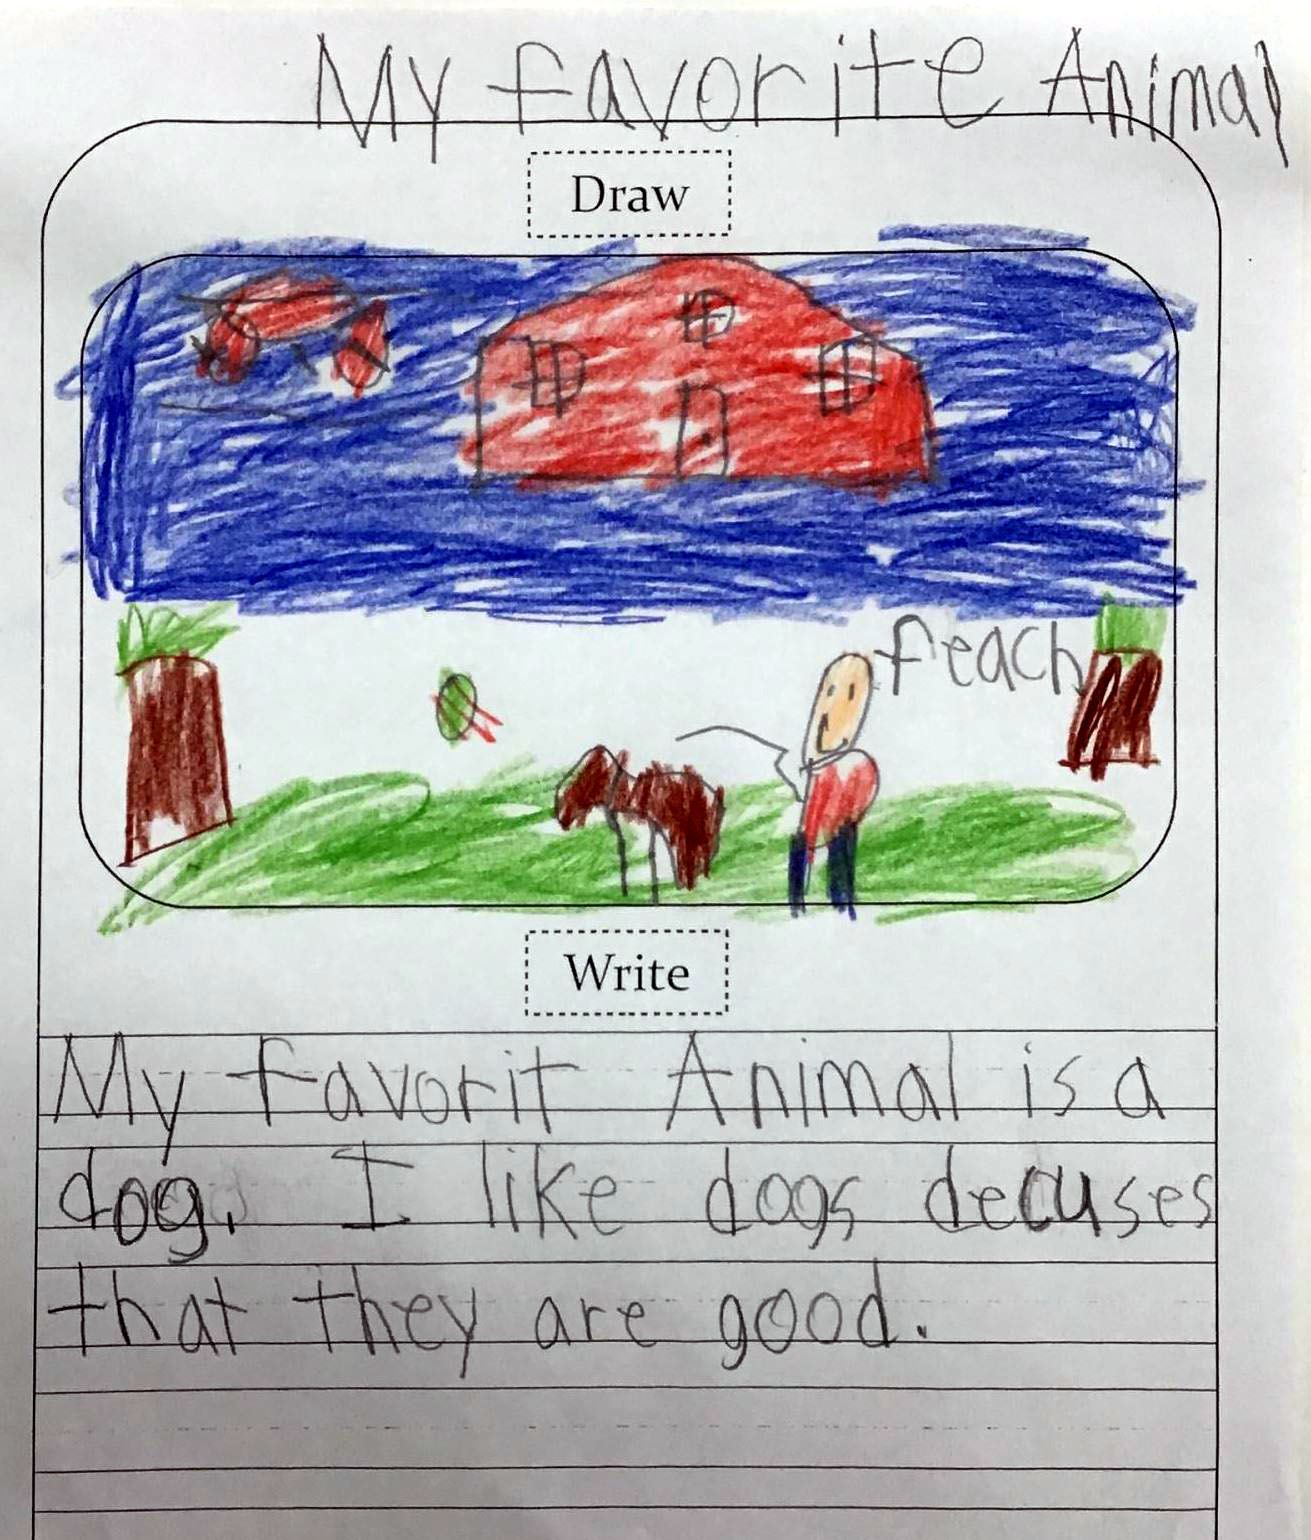 My favorite Animal
Draw
feach
Write
My favorit Animal is a
dog. I like dogs decuses
that they are good.